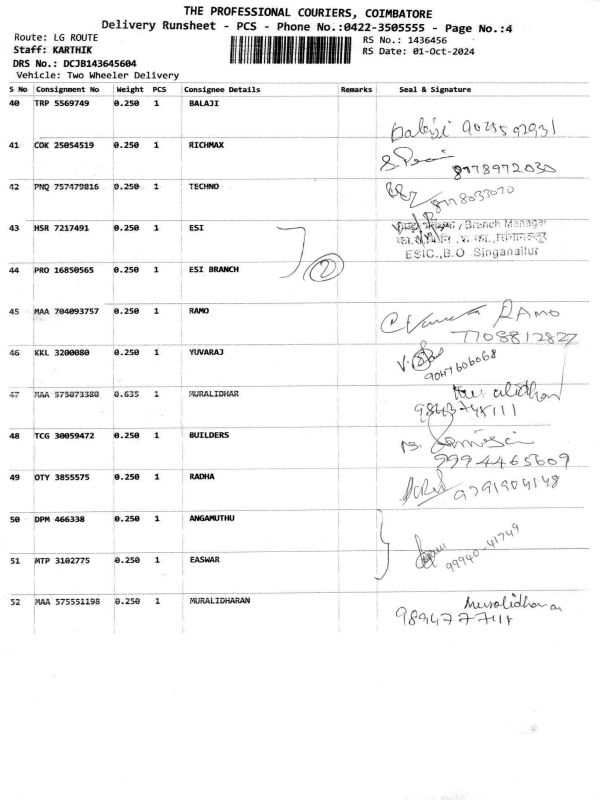 THE PROFESSIONAL COURIERS, COIMBATORE
Delivery Runsheet - PCS - Phone No.:0422-3505555 - Page No.:4
Route: LG ROUTE
Staff: KARTHIK
DRS No.: DCJB143645604
Vehicle: Two Wheeler Delivery
RS No.: 1436456
RS Date: 01-Oct-2024
S No Consignment No Weight PCS Consignee Details Remarks Seal & Signature
40 TRP 5569749 0.250 1 BALAJI
Balaji
41 COK 25054519 0.250 1 RICHMAX
8778972030
42 PNQ 757479816 0.250 1 TECHNO
8778033070
43 HSR 7217491 0.250 1 ESI
/ Branch Manager
ESIC.,B.O .Singanallur
2
44 PRO 16850565 0.250 1 ESI BRANCH
45 MAA 704093757 0.250 1 RAMO
RAMO
7708812827
46 KKL 3200080 0.250 1 YUVARAJ
9047606068
47 MAA 573073380 0.635 1 MURALIDHAR
Muralidharan
48 TCG 30059472 0.250 1 BUILDERS
9994465609
49 OTY 3855575 0.250 1 RADHA
9791904148
50 DPM 466338 0.250 1 ANGAMUTHU
99940-41749
51 MTP 3102775 0.250 1 EASWAR
52 MAA 575551198 0.250 1 MURALIDHARAN
Muralidharan